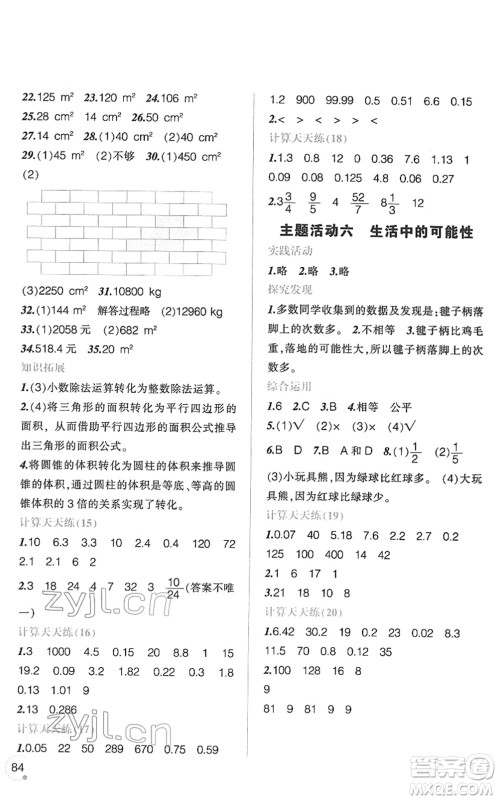 22.125 m² 23.120 m² 24.106 m²
25.28 cm² 26.50 cm²
27.14 cm² 28.(1)40 cm² (2)40 cm²
29.(1)45 m² (2)不够 30.(1)450 cm²
(2)
(3)2250 cm² 31.10800 kg
32.(1)144 m² 解答过程略 (2)12960 kg
33.(1)2058 元 (2)682 m²
34.518.4 元 35.20 m²
知识拓展
1.(3)小数除法运算转化为整数除法运算。
2.(4)将三角形的面积转化为平行四边形的
面积,从而借助平行四边形的面积公式推导
出三角形的面积公式。
4.将圆锥的体积转化为圆柱的体积,根据圆
锥的体积,通过圆柱的体积与等底等高的圆
锥的体积的 3 倍的关系实现了转化。
计算天天练(15)
1.10 6.3 3.3 10 24 720 92
2.1 2.1 6 2
2.3 18 24 4 3 10/24(答案不唯
一)
计算天天练(16)
1.3 1000 4.5 0.15 20 8.8 1 15
19.2 0.09 3.2 0.16 1 0.13 1.8
0.132 1.01 9
2.13 0.286
计算天天练(17)
1.0.05 22 50 289 0.75 0.59
84
1.2 900 99.99 0.5 51 6.6 0.15
2.< > > < > <
计算天天练(18)
1.1.3 0.8 12 0 0.36 7 16 1
0.09 0.08 0.125 4.8 0.06 0.27
2.3 3/4 9/5 4 52/7 8 1/3 12
主题活动六 生活中的可能性
实践活动
1.略 2.略 3.略
探究发现
1.多数同学收集到的数据及发现是:毽子柄落
脚上的次数多。 2.不相等 毽子柄比鸡毛
重,落地的可能性大,所以毽子柄落脚上的次
数多。
综合运用
1.6 2.C 3.B 4.相等 公平
5.(1)√ (2)× (3)× (4)√
6.B D 7.B A 和 D 8.(1)1/2 (2)1/2
(3)小玩具熊,因为绿球比红球多。 (4)大
玩具熊,因为红球比绿球少。
计算天天练(19)
1.0.07 40 5.18 20 7.8 2.7 0.2
125 100 400 13.8 0.76 9.9
2.1 6 17 1
3.21 18 10 8
计算天天练(20)
1.6.42 30 0.25 0.14 6.4 2.9
11.5 70 0.08 0.23 0.86 9.38
2.100 128 16 68 9 9 9
9
81 91 9 9
zyjl.cn
zyjl.cn